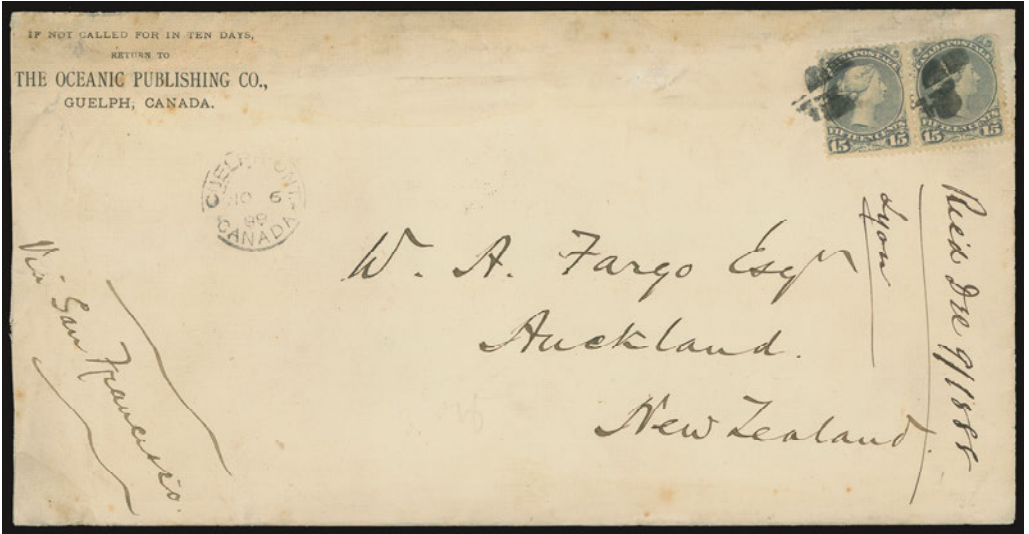 IF NOT CALLED FOR IN TEN DAYS,
RETURN TO
THE OCEANIC PUBLISHING CO.,
GUELPH, CANADA.
CANADA POSTAGE
FIFTEEN CENTS
15 15
CANADA POSTAGE
FIFTEEN CENTS
15 15
GUELPH ONT
NO 6
CANADA
W. A. Fargo Esqr
Auckland.
New Zealand.
Via San Francisco.
Lyon
Rec'd 9/1888